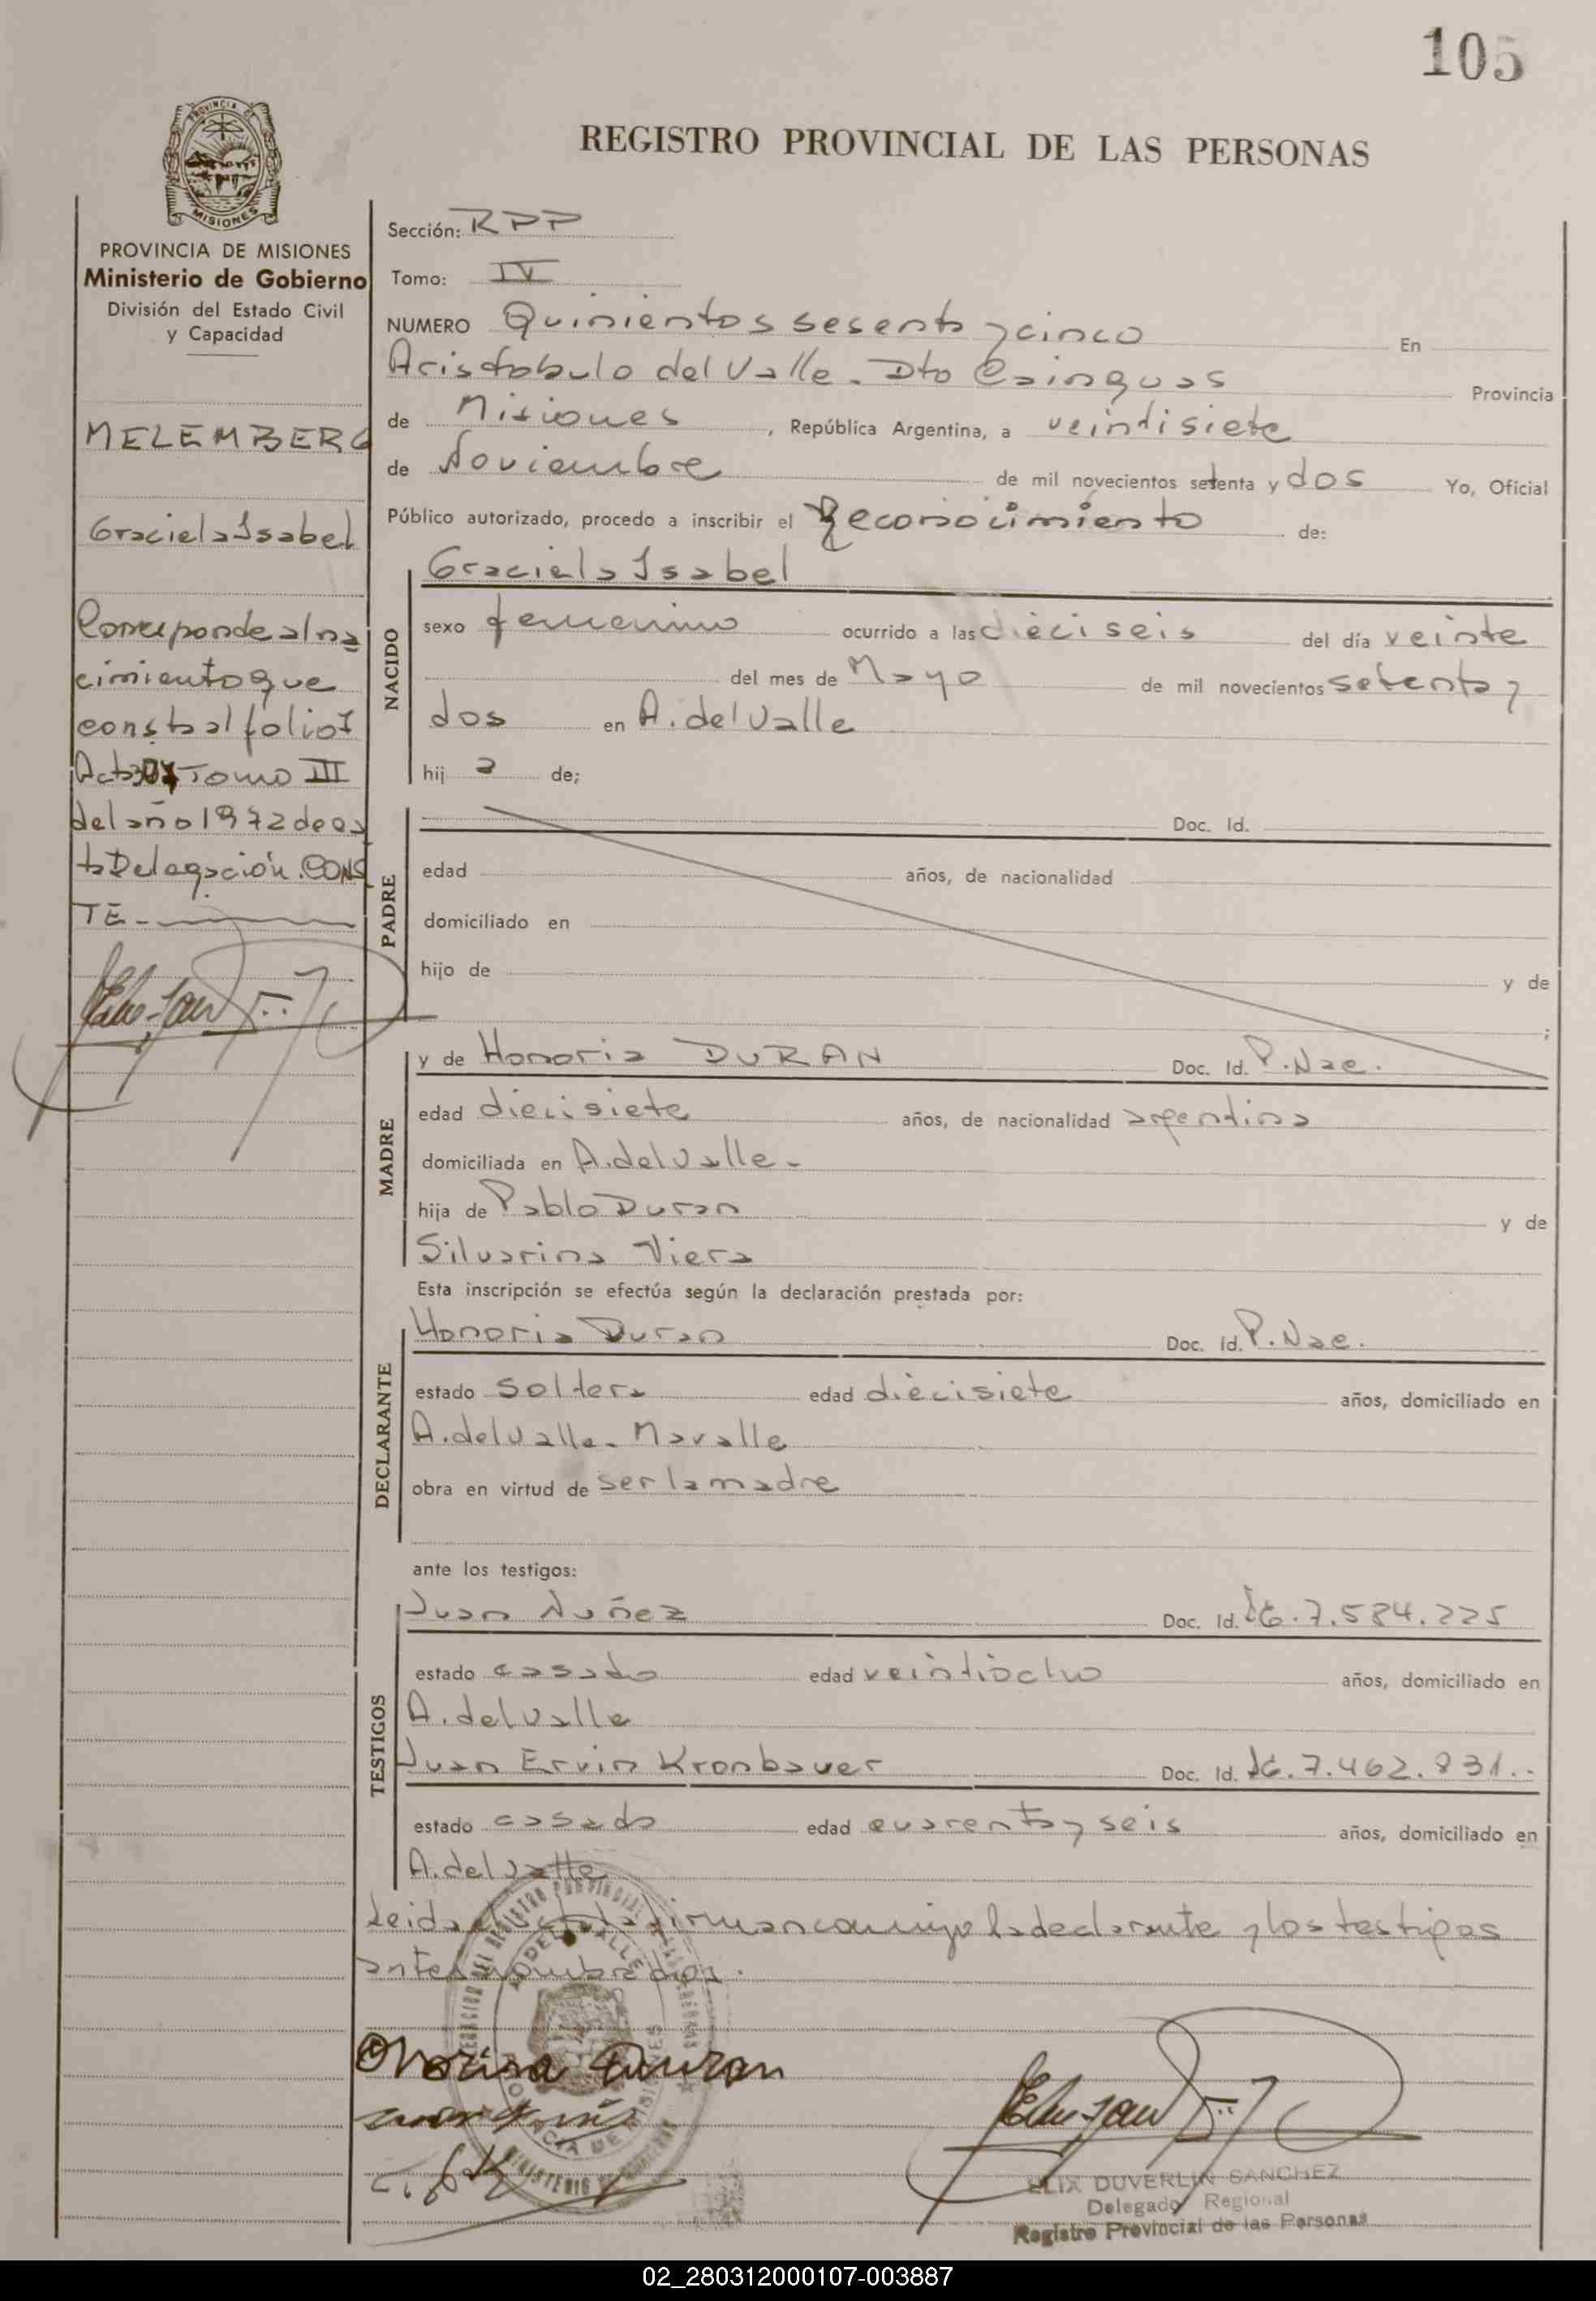 105
REGISTRO PROVINCIAL DE LAS PERSONAS
PROVINCIA DE MISIONES
Ministerio de Gobierno
División del Estado Civil
y Capacidad
MELEMBERG
Graciela Isabel
Corresponde al na
cimiento que
consta al folio
Acta Tomo III
del año 1972 de es
ta Delegación. CONS
TE.
Sección: RPP
Tomo: IV
NUMERO Quinientos sesenta y cinco En
Aristobulo del Valle. Dto Cainguas Provincia
de Misiones, República Argentina, a veintisiete
de Noviembre de mil novecientos setenta y dos Yo, Oficial
Público autorizado, procedo a inscribir el Reconocimiento de:
NACIDO
Graciela Isabel
sexo femenino ocurrido a las dieciseis del día veinte
del mes de Mayo de mil novecientos setenta y
dos en A. del Valle
hij a de;
PADRE
Doc. Id.
edad años, de nacionalidad
domiciliado en
hijo de y de
;
MADRE
y de Honoria DURAN Doc. Id. P. Nac.
edad diecisiete años, de nacionalidad argentina
domiciliada en A. del Valle.
hija de Pablo Duran y de
Silvarina Viera
Esta inscripción se efectúa según la declaración prestada por:
DECLARANTE
Honoria Duran Doc. Id. P. Nac.
estado soltera edad diecisiete años, domiciliado en
A. del Valle. Mavalle
obra en virtud de ser la madre
ante los testigos:
TESTIGOS
Juan Nuñez Doc. Id. 7.584.225
estado casado edad veintiocho años, domiciliado en
A. del Valle
Juan Ervin Kronbauer Doc. Id. 7.462.831..
estado casado edad cuarenta y seis años, domiciliado en
A. del Valle
Leida el acta la firman conmigo la declarante y los testigos
antes nombrados.
Duran
ELIX DUVERLIN SANCHEZ
Delegado Regional
Registro Provincial de las Personas
02_280312000107-003887